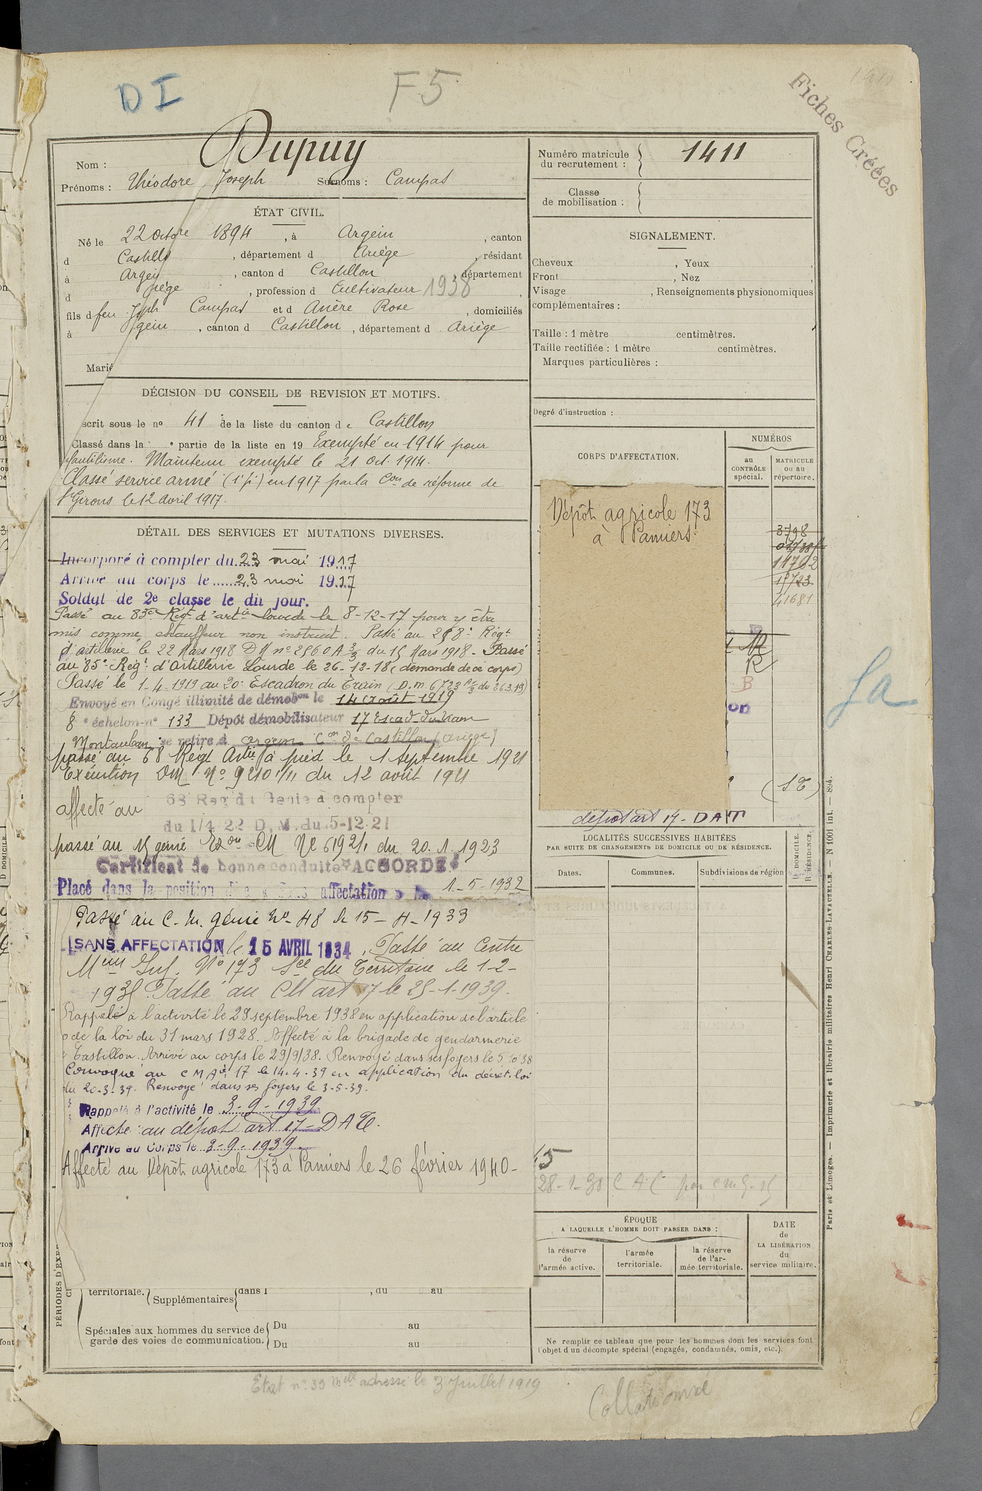 DI
F5
Fiches Créées
1411
Nom : Dupuy
Prénoms : Théodore Joseph Surnoms : Campas
ÉTAT CIVIL.
Né le 22 octbre 1894, à Argein, canton
d Castillo, département d Ariège, résidant
à Argein, canton d Castillon, département
d iège, profession d Cultivateur 1938,
fils d feu Jph Campas et d Anère Rose, domiciliés
à gein, canton d Castillon, département d Ariège
Marié
DÉCISION DU CONSEIL DE REVISION ET MOTIFS.
scrit sous le no 41 de la liste du canton de Castillon
Classé dans la e partie de la liste en 19 Exempté en 1914 pour
. Maintenu exempté le 21 oct. 1914.
Classé service armé (1 p.) en 1917 par la Con de réforme de
St Girons le 12 avril 1917.
DÉTAIL DES SERVICES ET MUTATIONS DIVERSES.
Incorporé à compter du 23 mai 1917
Arrivé au corps le 23 mai 1917
Soldat de 2e classe le dit jour.
Passé au 83e Régt d'artie lourde le 8-12-17 pour y être
mis comme chauffeur non instruit. Passé au 268e Régt
d'artillerie le 22 Mars 1918 DM no 2560 A 3/3 du 15 Mars 1918 - Passé
au 85e Regt d'Artillerie Lourde le 26-12-18 (demande de ce corps)
Passé le 1-4-1919 au 20e Escadron du Train (D.m 6723 du 26.3.19)
Envoyé en Congé illimité de démobon le 14 août 1919
8e échelon no 133 Dépôt démobilisateur 17 Escad. du Train
Montauban se retire à Argein Con de Castillon (Ariège)
passé au 68 Regt Artie à pied le 1 septembre 1921
Exécution DM No 9210 1/11 du 12 août 1921
affecté au 68 Reg du Genie à compter
du 1/4 22 D.M. du 5-12-21
passé au 15 génie Exon CM No 6192/4 du 20.1.1923
Certificat de bonne conduite "ACCORDÉ"
Placé dans la position dite sans affectation 1-5-1932
Passé au C.M. génie No 48 le 15-4-1933
SANS AFFECTATION le 15 AVRIL 1934. Passé au Centre
Inf. No 173 Sce du Territoire le 1-2-
193 Passé au CM art 17 le 25-1-1939.
Rappelé à l'activité le 29 septembre 1938 en application de l'article
de la loi du 31 mars 1928. Affecté à la brigade de gendarmerie
Castillon. Arrivé au corps le 29/9/38. Renvoyé dans ses foyers le 5 10 38
Convoqué au CM Art 17 le 14-4-39 en application du décret-loi
du 20-3-39. Renvoyé dans ses foyers le 3-5-39.
Rappelé à l'activité le 3-9-1939
Affecté au dépôt art 17-DAT.
Arrivé au Corps le 3-9-1939.
Affecté au Dépôt agricole 173 à Pamiers le 26 février 1940-
PÉRIODES D'EX
territoriale. Supplémentaires dans l , du au
Spéciales aux hommes du service de garde des voies de communication.
Du au
Du au
Numéro matricule du recrutement : 1411
Classe de mobilisation :
SIGNALEMENT.
Cheveux , Yeux
Front , Nez
Visage , Renseignements physionomiques
complémentaires :
Taille : 1 mètre centimètres.
Taille rectifiée : 1 mètre centimètres.
Marques particulières :
Degré d'instruction :
CORPS D'AFFECTATION.
NUMÉROS
au CONTRÔLE spécial.
MATRICULE ou au répertoire.
Dépôt agricole 173
à Pamiers
3798
11702
11723
41681
R
B
on
(ST)
dépôt art 17-DAT
LOCALITÉS SUCCESSIVES HABITÉES
PAR SUITE DE CHANGEMENTS DE DOMICILE OU DE RÉSIDENCE.
Dates.
Communes.
Subdivisions de région
D. DOMICILE.
R. RÉSIDENCE.
15
28-1-38
ÉPOQUE
A LAQUELLE L'HOMME DOIT PASSER DANS :
la réserve de l'armée active.
l'armée territoriale.
la réserve de l'armée territoriale.
DATE de LA LIBÉRATION du service militaire.
Ne remplir ce tableau que pour les hommes dont les services font
l'objet d'un décompte spécial (engagés, condamnés, omis, etc.).
Paris et Limoges. — Imprimerie et librairie militaires Henri CHARLES-LAVAUZELLE. — N 1001 int. — 894.
Etat no 39 adresse le 3 Juillet 1919
Collationné